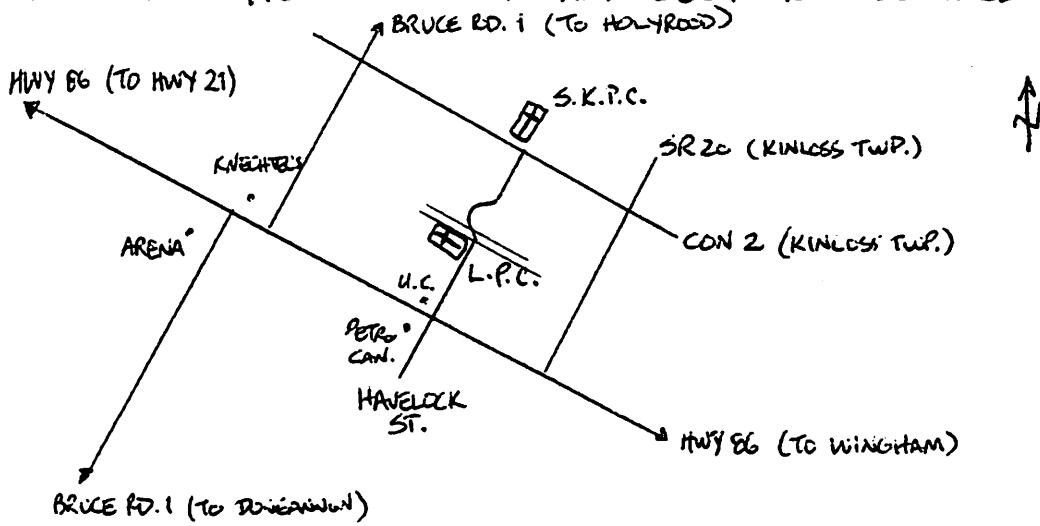 BRUCE RD. 1 (TO HOLYROOD)
HWY 86 (TO HWY 21)
S.K.P.C.
N
SR 20 (KINLOSS TWP.)
KNECHTEL'S
ARENA
CON 2 (KINLOSS TWP.)
L.P.C.
U.C.
PETRO
CAN.
HAVELOCK
ST.
HWY 86 (TO WINGHAM)
BRUCE RD. 1 (TO DUNGANNON)